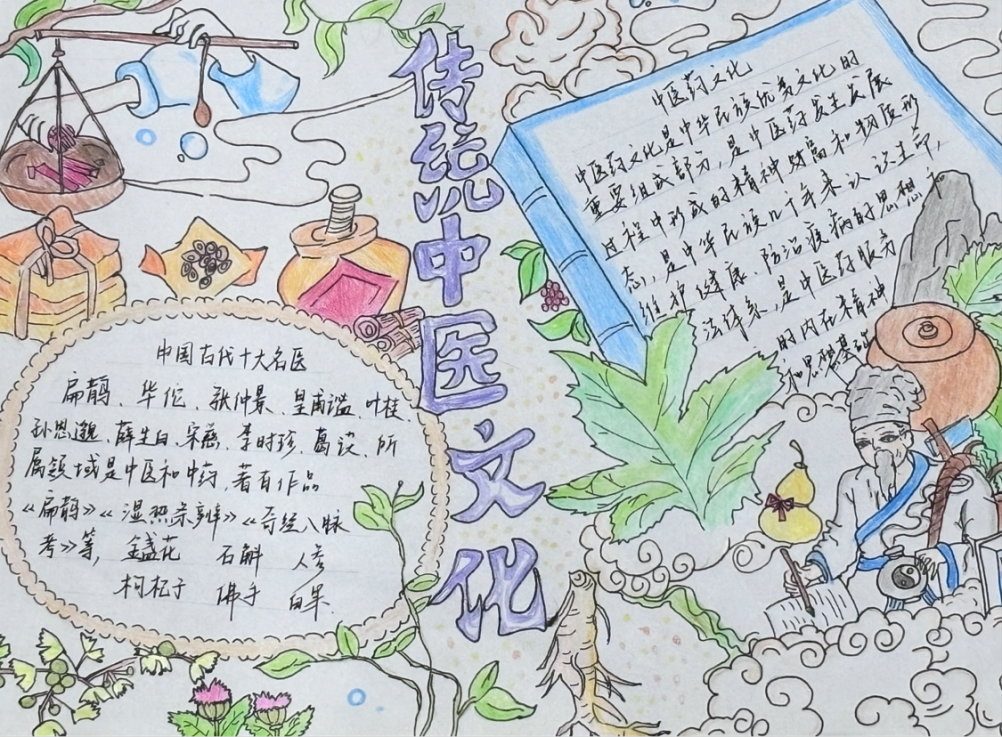 传统中医文化
中医药文化
中医药文化是中华民族优秀文化的
重要组成部分，是中医药发生发展
过程中形成的精神财富和物质形
态，是中华民族几千年来认识生命，
维护健康、防治疾病的思想和
方法体系，是中医药服务
的内在精神
和思想基础
中国古代十大名医
扁鹊、华佗、张仲景、皇甫谧、叶桂、
孙思邈、薛生白、宋慈、李时珍、葛洪，所
属领域是中医和中药，著有作品
《扁鹊》《湿热条辨》《奇经八脉
考》等，金盏花 石斛 人参
枸杞子 佛手 白果